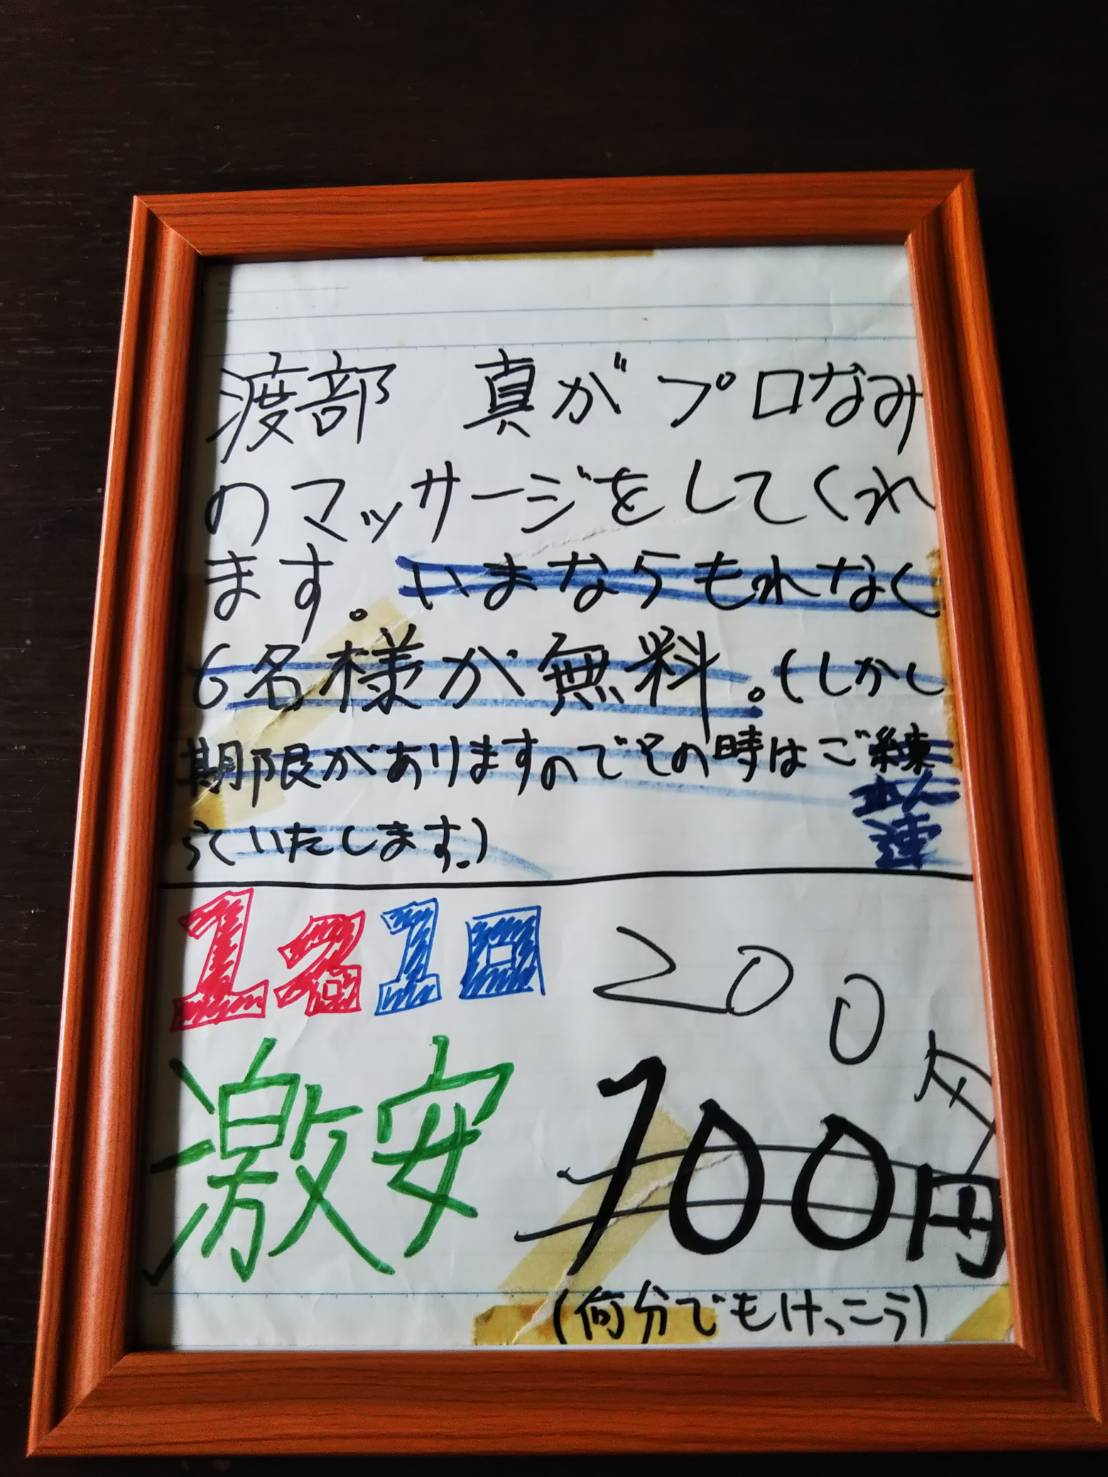 渡部 真がプロなみ
のマッサージをしてくれ
ます。いまならもれなく
6名様が無料。(しかし
期限がありますのでその時はご
らくいたします。)
1名1回 200
激安 100円
(何分でもけっこう)